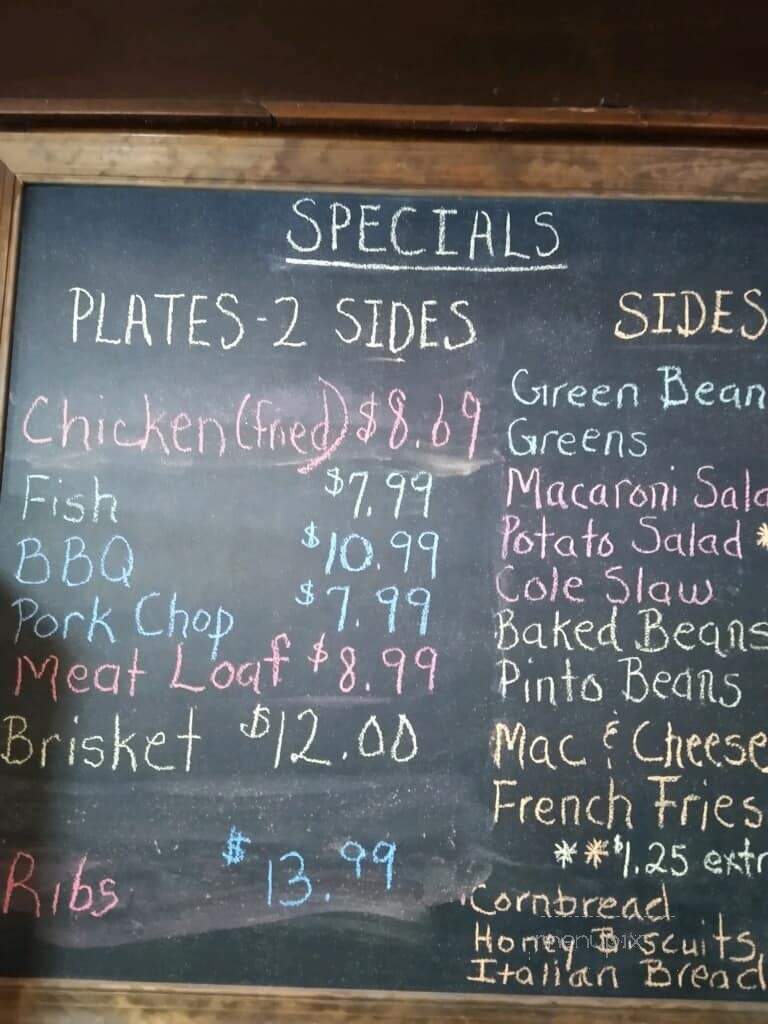 SPECIALS
PLATES-2 SIDES
Chicken (fried) $8.69
Fish $7.99
BBQ $10.99
Pork Chop $7.99
Meat Loaf $8.99
Brisket $12.00
Ribs $13.99
SIDES
Green Bean
Greens
Macaroni Sala
Potato Salad *
Cole Slaw
Baked Beans
Pinto Beans
Mac & Cheese
French Fries
** $1.25 extr
Cornbread
Honey Biscuits
Italian Bread
menupix